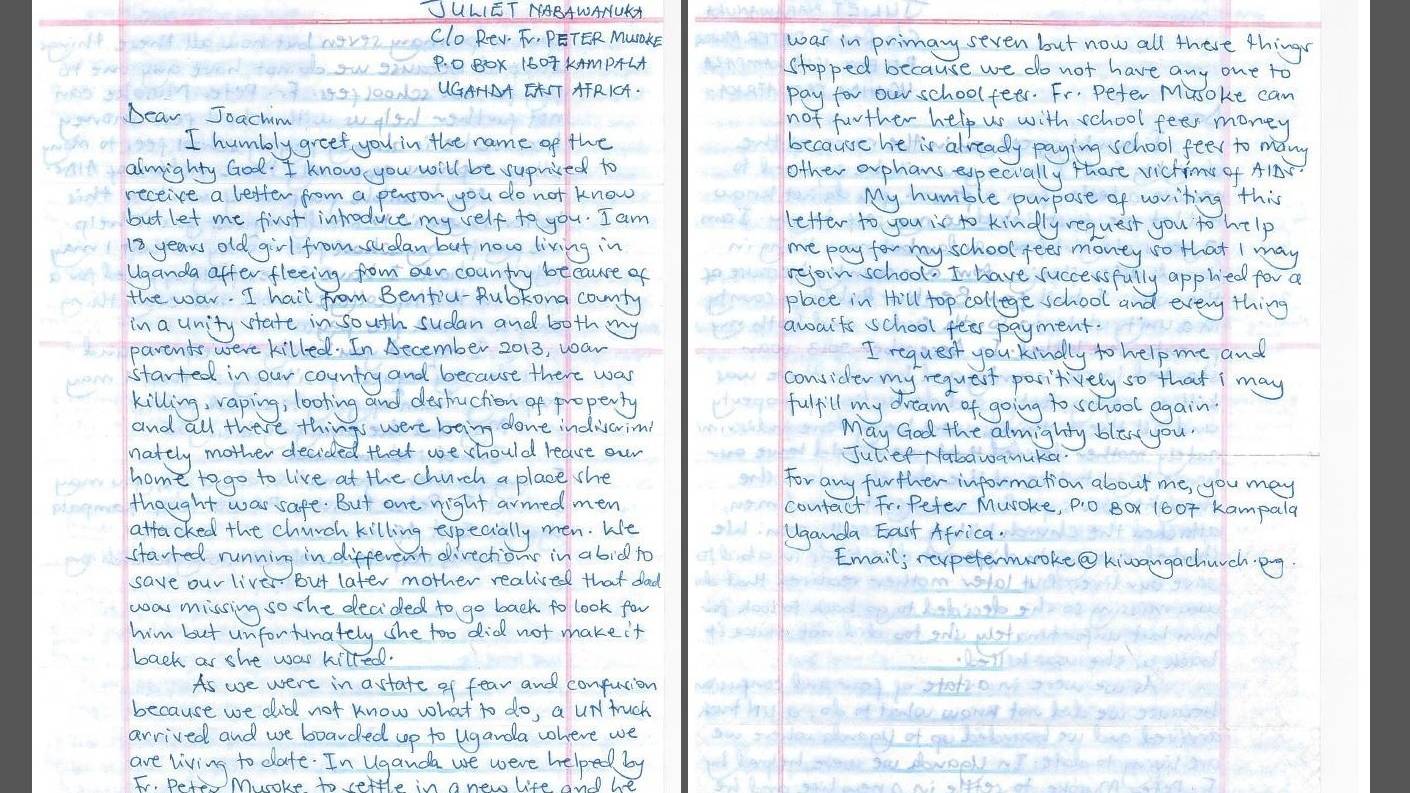 JULIET NABAWANUKA
C/o Rev. Fr. PETER MUSOKE
P.O BOX 1607 KAMPALA
UGANDA EAST AFRICA.
Dear Joachim
I humbly greet you in the name of the
almighty God. I know you will be suprised to
receive a letter from a person you do not know
but let me first introduce my self to you. I am
18 years old girl from sudan but now living in
Uganda after fleeing from our country because of
the war. I hail from Bentiu-Rubkona county
in a unity state in south sudan and both my
parents were killed. In December 2013, war
started in our country and because there was
killing, raping, looting and destruction of property
and all these things were being done indiscrimi
nately mother decided that we should leave our
home to go to live at the church a place she
thought was safe. But one night armed men
attacked the church killing especially men. We
started running in different directions in a bid to
save our lives. But later mother realised that dad
was missing so she decided to go back to look for
him but unfortunately she too did not make it
back as she was killed.
As we were in a state of fear and confusion
because we did not know what to do, a UN truck
arrived and we boarded up to Uganda where we
are living to date. In Uganda we were helped by
Fr. Peter Musoke to settle in a new life and he
was in primary seven but now all these things
stopped because we do not have any one to
pay for our school fees. Fr. Peter Musoke can
not further help us with school fees money
because he is already paying school fees to many
other orphans especially those victims of AIDs.
My humble purpose of writing this
letter to you is to kindly request you to help
me pay for my school fees money so that I may
rejoin school. I have successfully applied for a
place in Hill top college school and every thing
awaits school fees payment.
I request you kindly to help me and
consider my request positively so that i may
fulfill my dream of going to school again.
May God the almighty bless you.
Juliet Nabawanuka.
For any further information about me, you may
contact Fr. Peter Musoke, P.O BOX 1607 Kampala
Uganda East Africa.
Email; revpetermusoke@kiwangachurch.org.